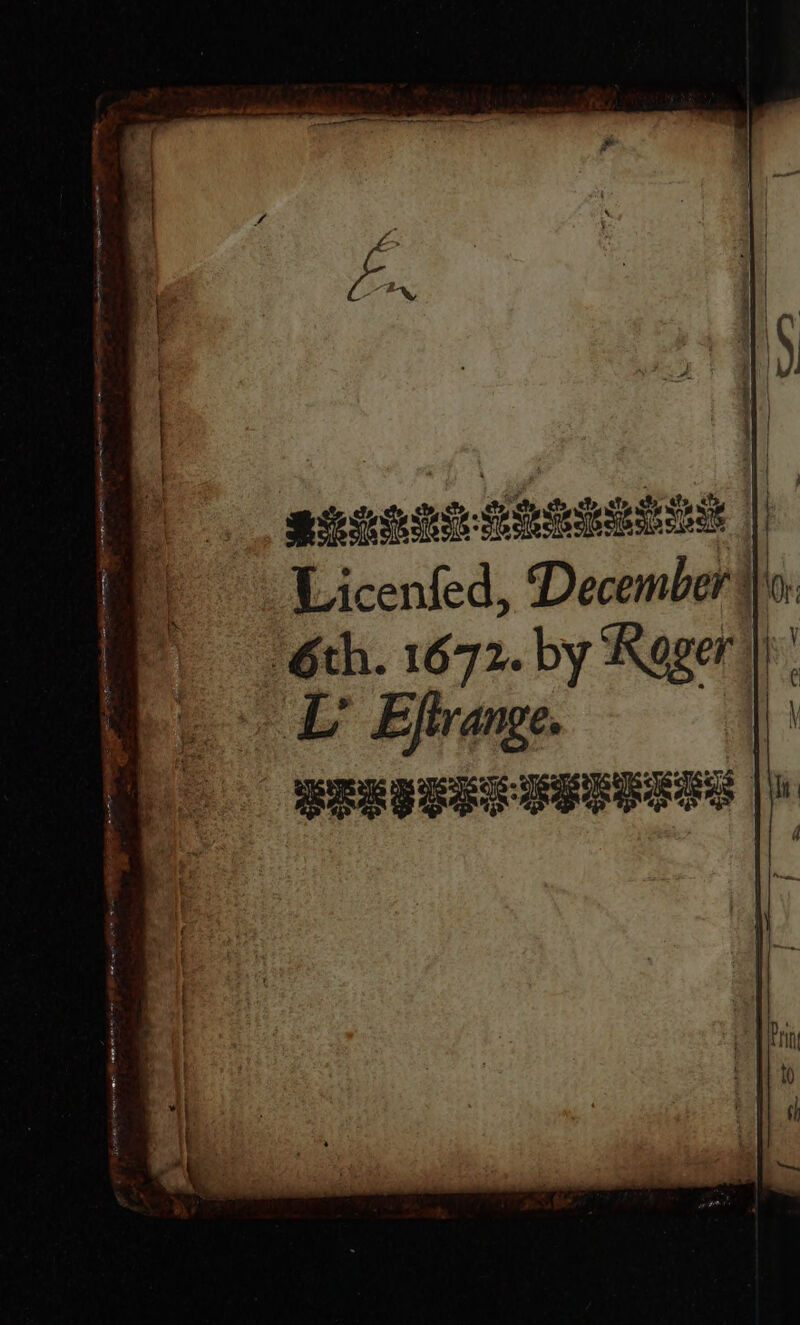 Licenſed, December
6th. 1672. by Roger
L' Eſtrange.